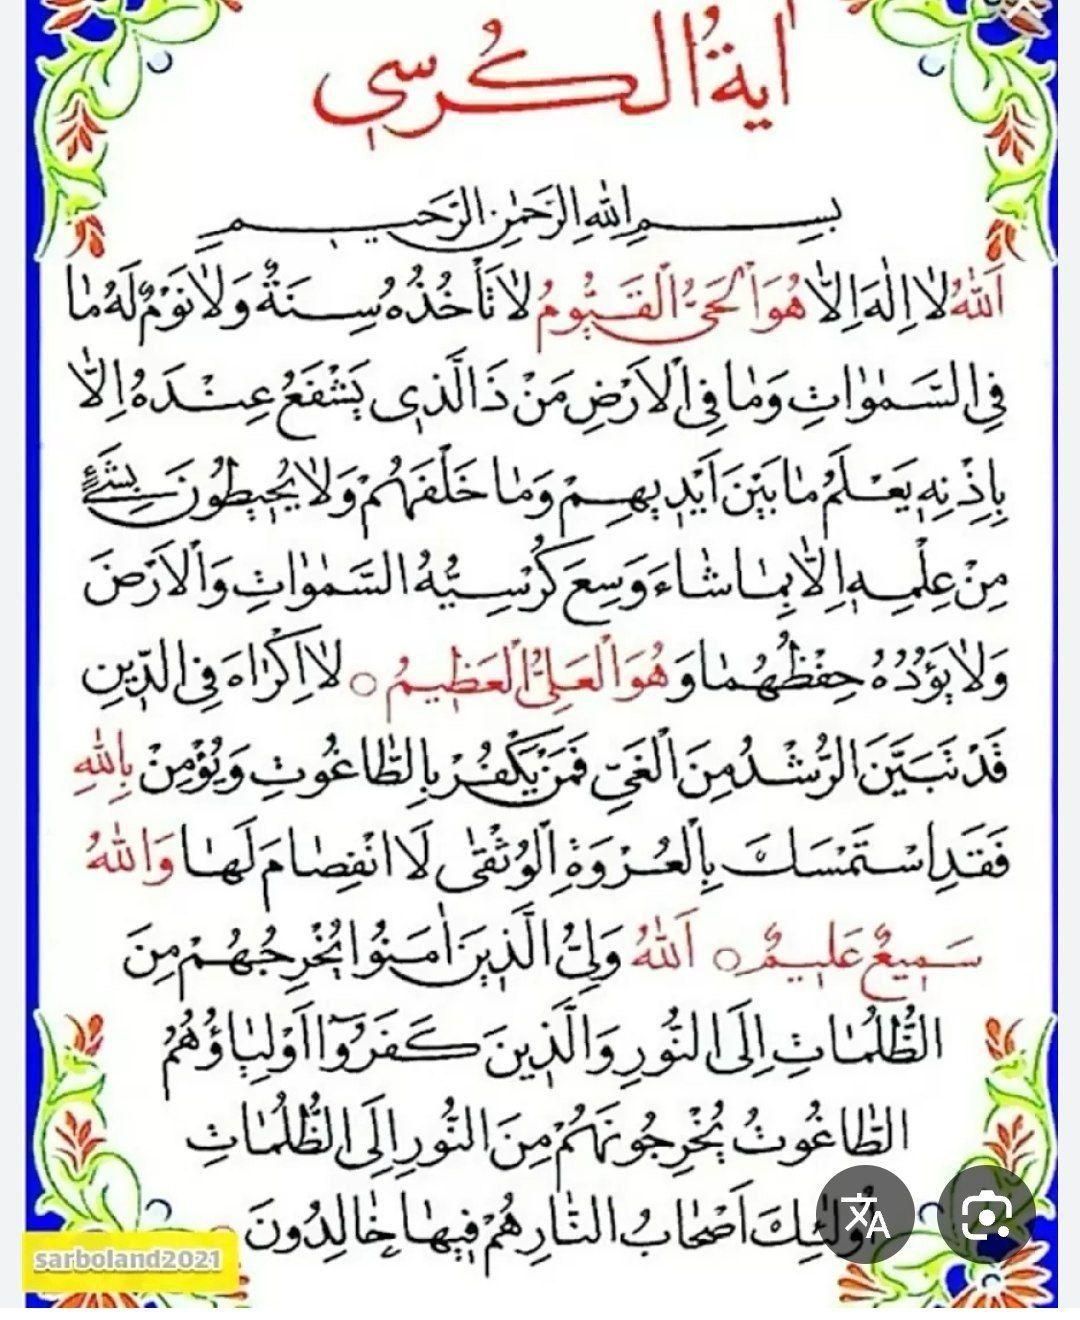 اٰيةُ الكُرسي
بِسمِ اللّٰهِ الرَّحمٰنِ الرَّحيمِ
اَللّٰهُ لٰا اِلٰهَ اِلاّٰ هُوَ الْحَيُّ الْقَيُّومُ لٰا تَأْخُذُهُ سِنَةٌ وَلٰا نَوْمٌ لَهُ مٰا
فِي السَّمٰوٰاتِ وَمٰا فِي الْاَرْضِ مَنْ ذَا الَّذي يَشْفَعُ عِنْدَهُ اِلاّٰ
بِاِذْنِهِ يَعْلَمُ مٰا بَيْنَ اَيْديهِمْ وَمٰا خَلْفَهُمْ وَلٰا يُحيطُونَ بِشَيْءٍ
مِنْ عِلْمِهِ اِلاّٰ بِمٰا شٰاءَ وَسِعَ كُرْسِيُّهُ السَّمٰوٰاتِ وَالْاَرْضَ
وَلٰا يَؤُدُهُ حِفْظُهُمٰا وَ هُوَ الْعَلِيُّ الْعَظيمُ ○ لٰا اِكْرٰاهَ فِي الدّينِ
قَدْ تَبَيَّنَ الرُّشْدُ مِنَ الْغَيِّ فَمَنْ يَكْفُرْ بِالطّٰاغُوتِ وَيُؤْمِنْ بِاللّٰهِ
فَقَدِ اسْتَمْسَكَ بِالْعُرْوَةِ الْوُثْقىٰ لَا انْفِصٰامَ لَهٰا وَاللّٰهُ
سَميعٌ عَليمٌ ○ اَللّٰهُ وَلِيُّ الَّذينَ اٰمَنُوا يُخْرِجُهُمْ مِنَ
الظُّلُمٰاتِ اِلَى النُّورِ وَالَّذينَ كَفَرُوا اَوْلِيٰاؤُهُمُ
الطّٰاغُوتُ يُخْرِجُونَهُمْ مِنَ النُّورِ اِلَى الظُّلُمٰاتِ
اُولٰئِكَ اَصْحٰابُ النّٰارِ هُمْ فيهٰا خٰالِدُونَ
sarboland2021